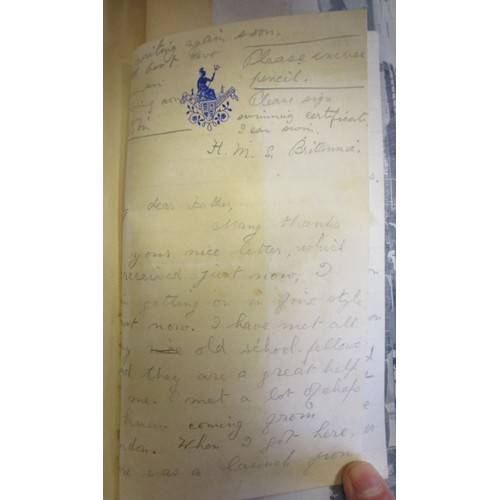 writing again soon.
Please excuse
pencil.
Please sign
swimming certificate
I can swim.
H. M. S. Britannia.
dear Father,
Many thanks
your nice letter, which
received just now, I
getting on in fine style
now. I have met all
nice old school-fellows
they are a great help
me. I met a lot of chaps
knew coming from
When I got here,
was a launch from